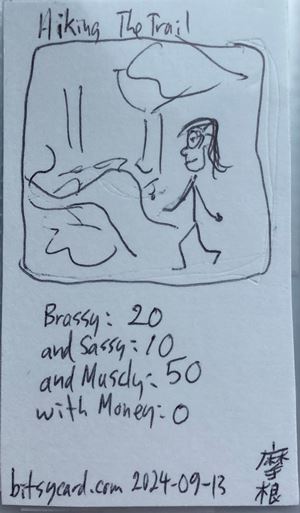 Hiking The Trail
Brassy: 20
and Sassy: 10
and Muscly: 50
with Money: 0
摩根
bitsycard.com 2024-09-13